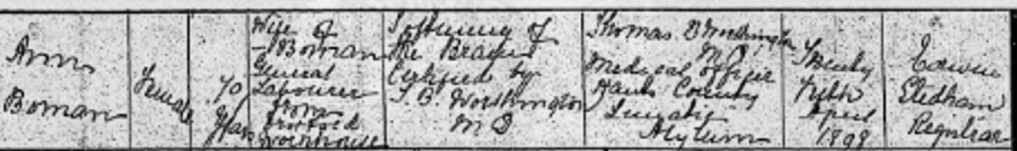 Ann
Boman
Female
70
Years
Wife of
- Boman
General
Labourer
from
Workhouse
Softening of
the Brain
Certified by
T. B. Worthington
M B
Thomas B Worthington
M B
Medical Officer
Hants County
Lunatic
Asylum
Twenty
Fifth
April
1898
Edwin
Stedham
Registrar